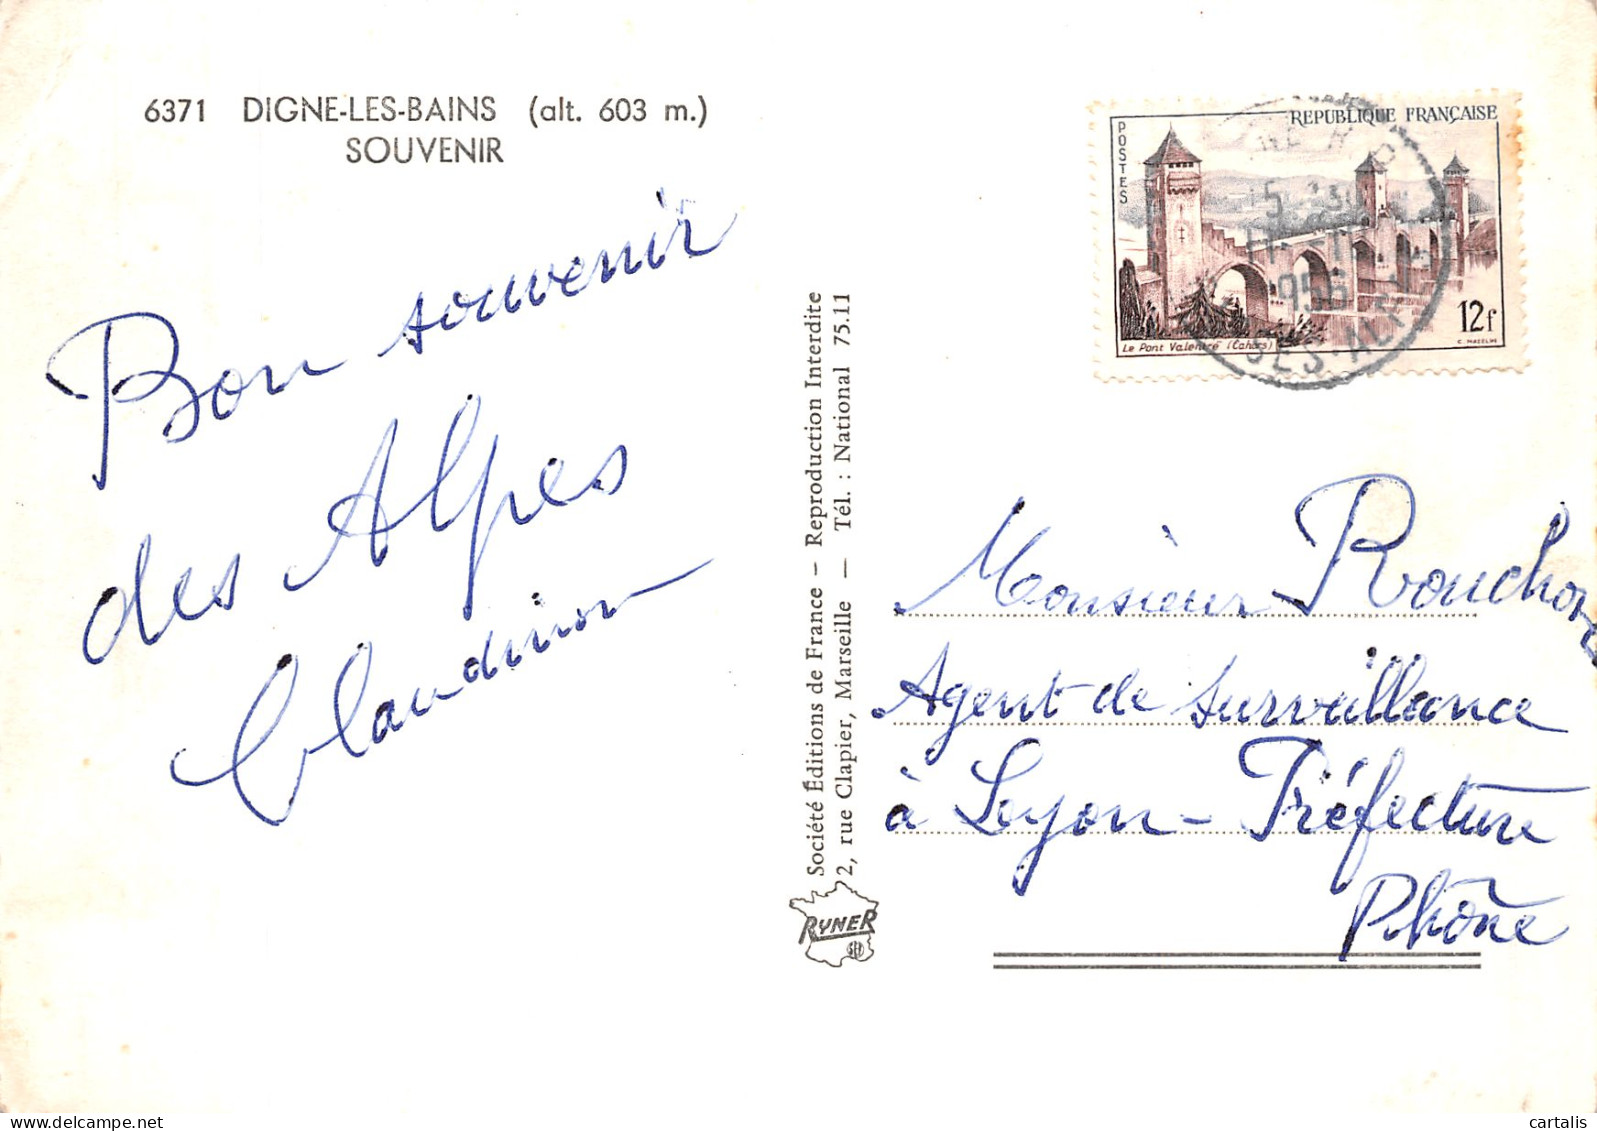 6371 DIGNE-LES-BAINS (alt. 603 m.)
SOUVENIR
Bon souvenir
des Alpes
Claudinon
Société Éditions de France - Reproduction Interdite
2, rue Clapier, Marseille — Tél. : National 75.11
RYNER
POSTES
REPUBLIQUE FRANÇAISE
12f
Le Pont Valentré (Cahors)
C. MAZELIN
1956
SES-ALPES
Monsieur Rouchon
Agent de surveillance
à Lyon - Préfecture
Rhône
cartalis